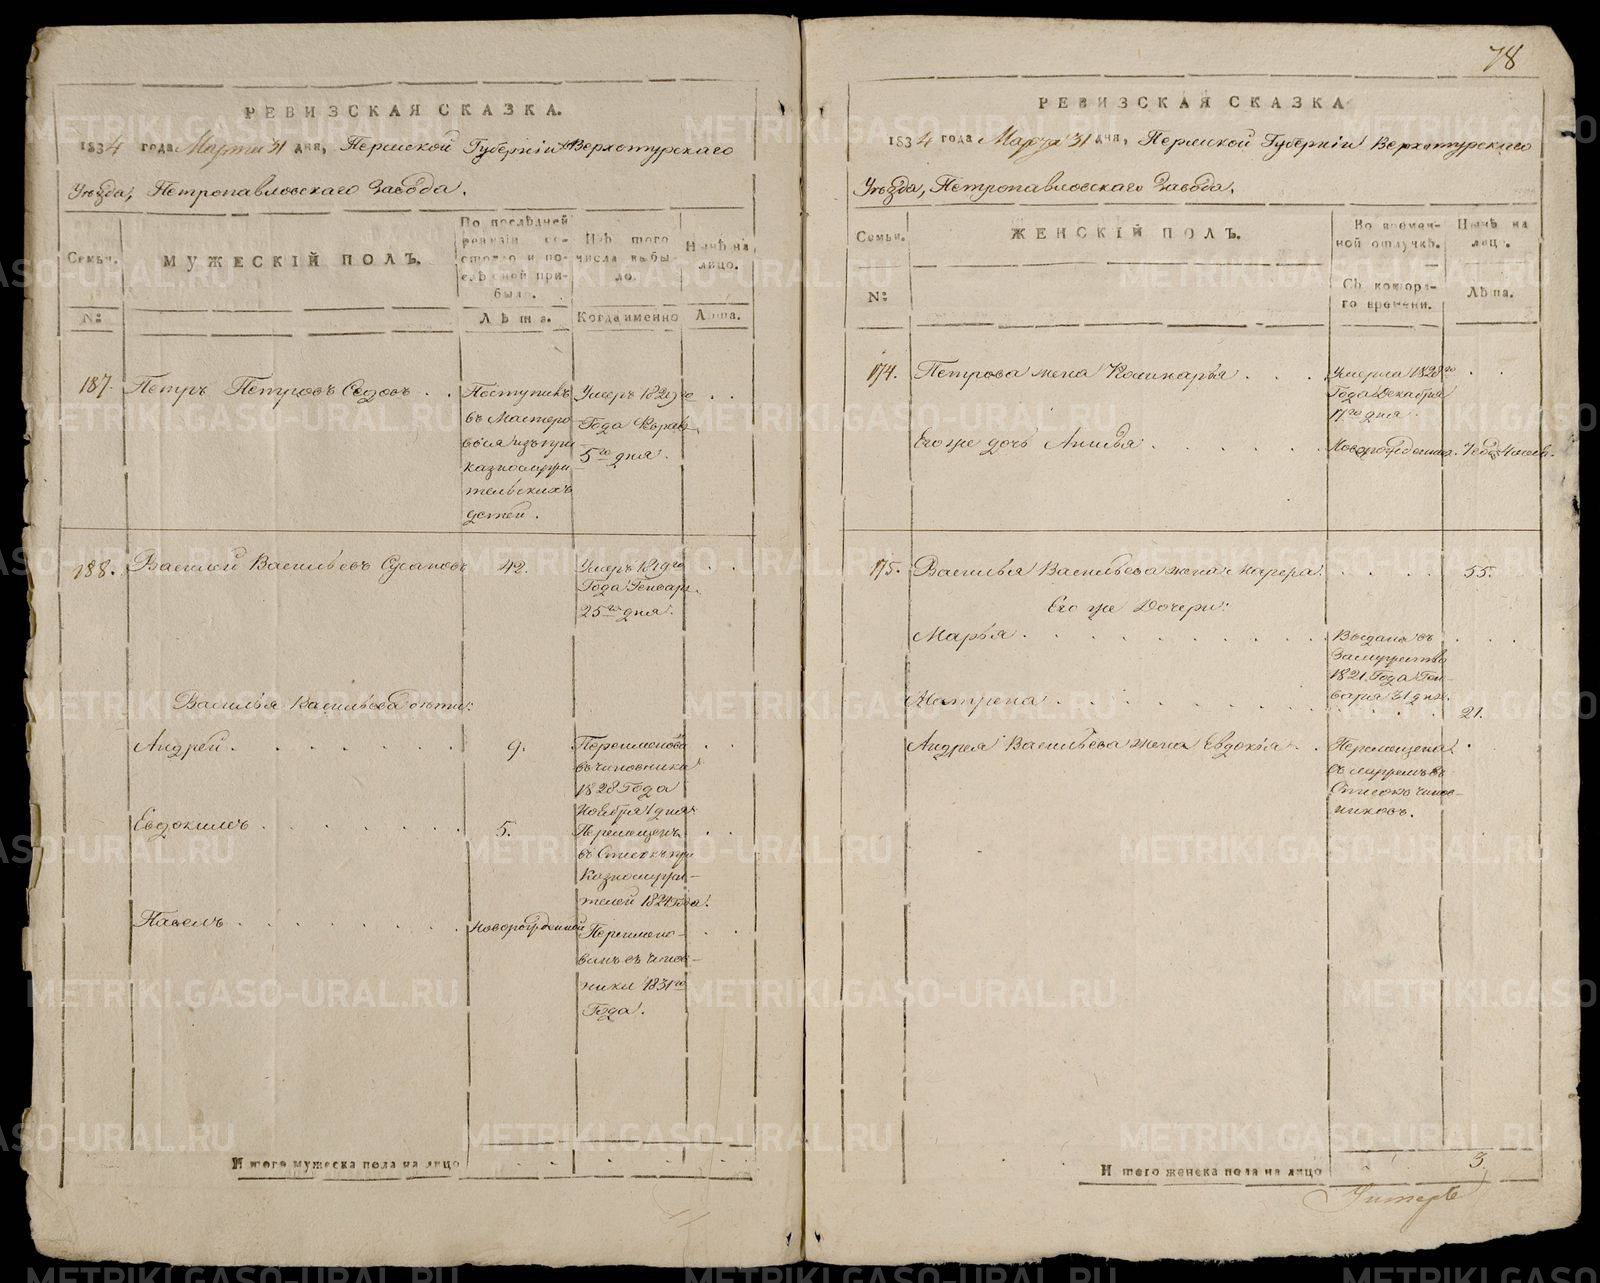 РЕВИЗСКАЯ СКАЗКА.
1834 года Марта 31 дня, Пермской Губерніи Верхотурскаго
Уѣзда, Петропавловскаго Завода.
Семьи.
МУЖЕСКІЙ ПОЛЪ.
По послѣдней ревизіи состояло и послѣ оной прибыло.
Изъ того числа выбыло.
Нынѣ на лицо.
№:
Лѣта.
Когда именно
Лѣта.
187.
Петръ Петровъ Седовъ . .
Поступилъ
въ Мастеро
выя изъ при
казнослужи
тельскихъ
детей.
Умеръ 1829го
Года Февраля
5го дня.
188.
Василей Васильевъ Сусановъ
42.
Умеръ 1819го
Года Генваря
25го дня.
Василья Васильева дѣти:
Андрей
9.
Переименова
въ чиновника
1828 Года
Ноября 1 дня.
Евдокимъ
5.
Перемещенъ
въ Списокъ при
Казнослужи-
телей 1824 года.
Павелъ
новорожденной
Переимено-
ванъ въ чинов-
ники 1831го
Года.
Итого мужеска пола на лицо
78
РЕВИЗСКАЯ СКАЗКА
1834 года Марта 31 дня, Пермской Губерніи Верхотурскаго
Уѣзда, Петропавловскаго Завода.
Семьи.
ЖЕНСКІЙ ПОЛЪ.
Во временной отлучкѣ.
Нынѣ на лицо.
№:
Съ котораго времени.
Лѣта.
174.
Петрова жена
Умерла 1828го
Года Декабря
17го дня.
Его же дочь
Новорожденная.
175.
Василья Васильева жена
55.
Его же Дочери:
Марья
Выдана въ
Замужество
1821 Года Ген-
варя 31 дня.
Матрена
21.
Андрея Васильева жена Евдокья
Перемещена
съ мужемъ въ
Списокъ чинов-
никовъ.
Итого женска пола на лицо
3.